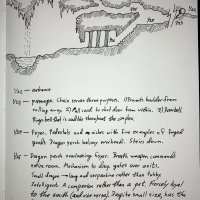 1/02 - entrance
1/03 - passage. Chain serves three purposes. 1) Prevents boulder from
rolling away. 2) Pull cord to shut door from within. 3) Doorbell.
huge bell that is audible throughout the complex.
1/04 - Foyer. Pedestals and niches with five examples of forged
goods. Dragon perch halfway overhead. Stairs down.
1/05 - Dragon perch overlooking foyer. Breath weapon commands
entire room. Mechanism to drop gates over exits.
Small dragon - long and serpentine rather than tubby.
Intelligent. A companion rather than a pet. Fiercely loyal
to the smith (and vice versa). Despite small size, has the